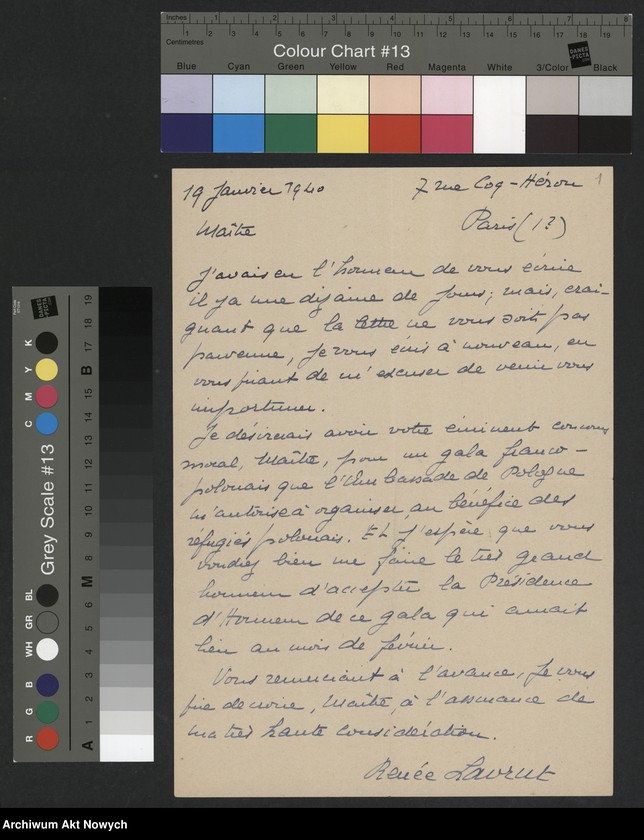 Inches 1 2 3 4 5 6 7 8
Centimetres 1 2 3 4 5 6 7 8 9 10 11 12 13 14 15 16 17 18 19
Colour Chart #13
DANES
PICTA
Blue Cyan Green Yellow Red Magenta White 3/Color Black
19 Janvier 1940 7 rue Coq-Héron 1
Maître Paris (1?)
J'avais eu l'honneur de vous écrire
il y a une dizaine de jours; mais, crai-
gnant que la lettre ne vous soit pas
parvenue, je vous écris à nouveau, en
vous priant de m'excuser de venir vous
importuner.
Je désirerais avoir votre éminent concours
moral, Maître, pour un gala franco-
polonais que l'Ambassade de Pologne
m'autorise à organiser au bénéfice des
réfugiés polonais. Et j'espère que vous
voudrez bien me faire le très grand
honneur d'accepter la Présidence
d'Honneur de ce gala qui aurait
lieu au mois de février.
Vous remerciant à l'avance, je vous
prie de croire, Maître, à l'assurance de
ma très haute considération.
Renée
Grey Scale #13
DANES
PICTA
R G B WH GR BL C M Y K
A 1 2 3 4 5 6 M 8 9 10 11 12 13 14 15 B 17 18 19
Archiwum Akt Nowych